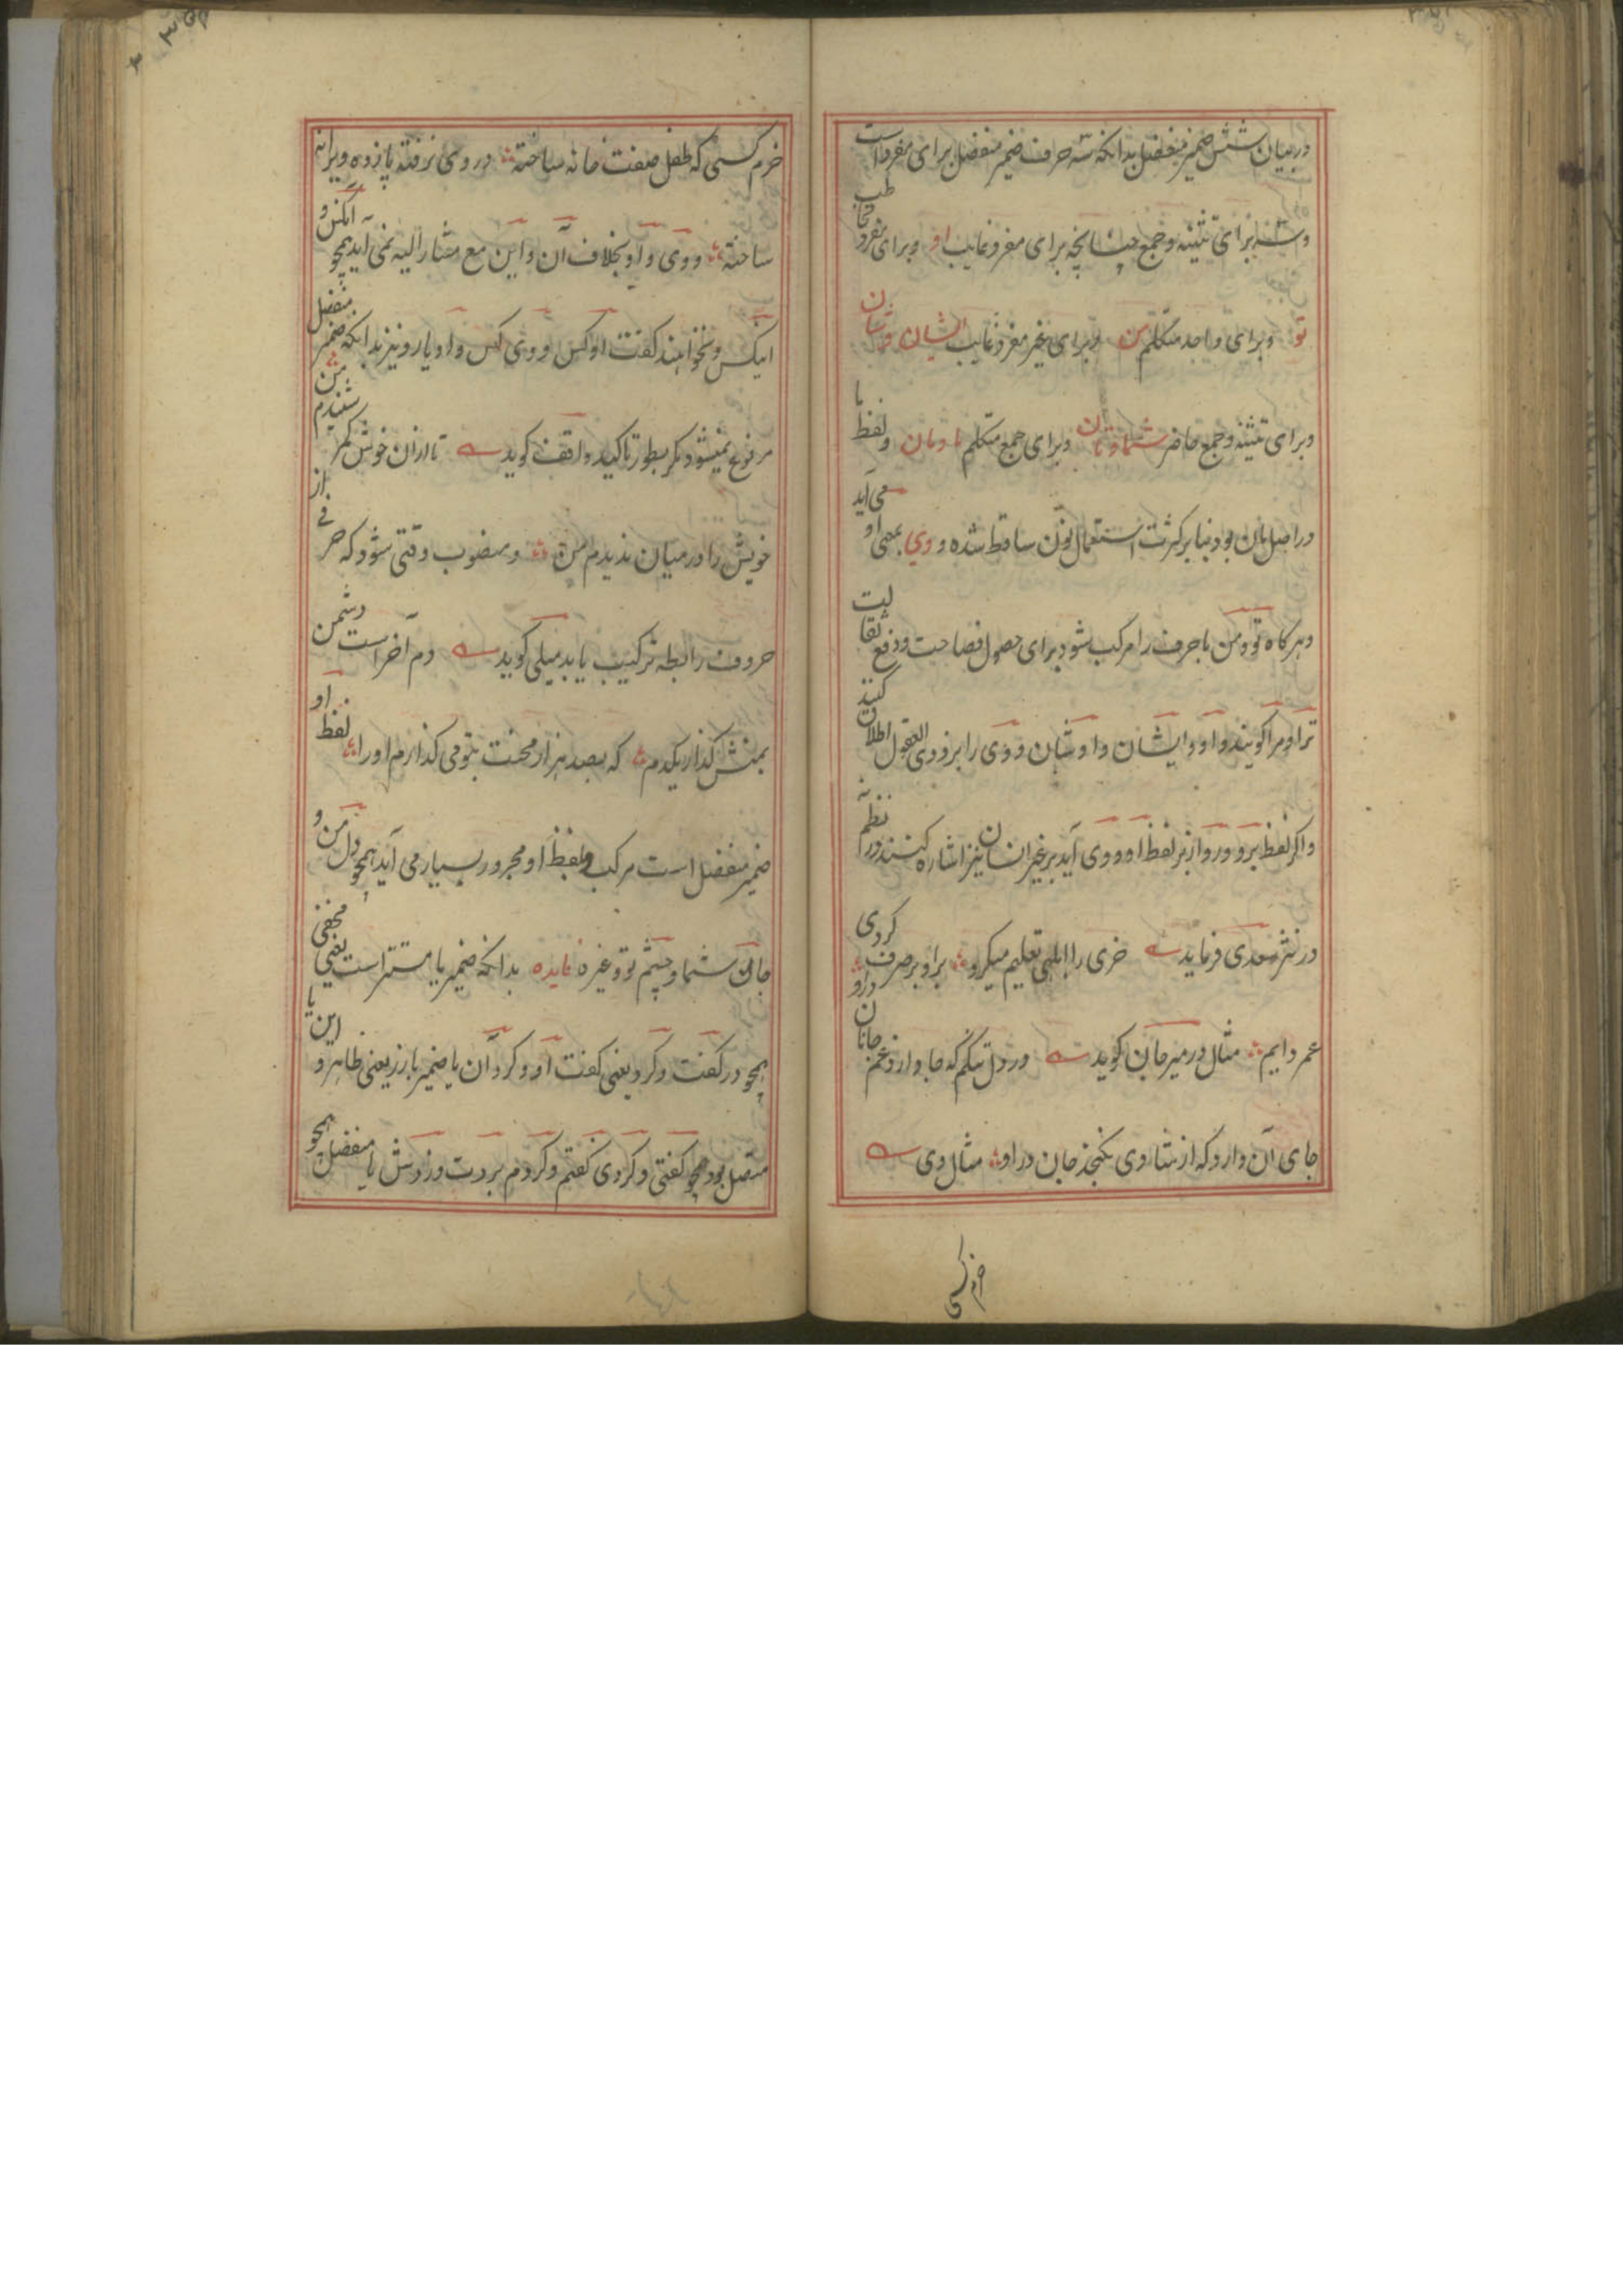 در بیان شش ضمیر منفصل بدانکه سه حرف ضمیر منفصل برای مفرد است
و سه برای تثنیه و جمع چنانچه برای مفرد غایب او و برای مفرد مخاطب
تو و برای واحد متکلم من و برای غیر مفرد غایب ایشان و شان
و برای تثنیه و جمع حاضر شما و تان و برای جمع متکلم ما و مان و لفظ ما
در اصل مان بود بنا بر کثرت استعمال نون ساقط شده و وی بمعنی او می آید
و هر کاه تو و من با حرف را مرکب شود برای حصول فصاحت و دفع ثقالت
ترا و مرا کویند و او و ایشان و اوشان و وی را بر ذوی العقول اطلاق کنند
و اکر لفظ بر و در و از بر لفظ او و وی آید بر غیر انسان نیز اشاره کنند در نظم نه
در نثر سعدی فرماید خری را ابلهی تعلیم میکرد برو بر صرف کردی
عمر دایم مثال در میر جان کوید در دل تنکم که جا دارد غم جانان درو
جای آن دارد که از شادی نکنجد جان در او مثال وی
خرم کسی
خرم کسی که طفل صفت خانه ساخته در وی نرفته پا زده ویرانه
ساخته و وی و او بخلاف آن و این مع مشار الیه نمی آید همچو آنکس و
اینکس و نخواهند کفت او کس و وی کس و او یار و نیز بدانکه ضمیر منفصل
مرفوع نمیشود مکر بطور تاکید واقف کوید تا ازان خوش کمر شنیدم من
خویش را در میان ندیدم من و منصوب وقتی شود که حرفی از
حروف رابطه ترکیب یابد میلی کوید دم آخر است دشمن
بمنش کذار یکدم که بصد هزار محنت بتو می کذارم او را لفظ او
ضمیر منفصل است مرکب و لفظ او مجرور بسیار می آید همچو دل من و
جان شما و چشم تو و غیره فایده بدانکه ضمیر یا مستتر است یعنی مخفی
همچو در کفت و کرد یعنی کفت او و کرد آن یا ضمیر بارز یعنی ظاهر و این یا
متصل بود همچو کفتی و کردی کفتم و کردم بردت و زدش یا منفصل همچو